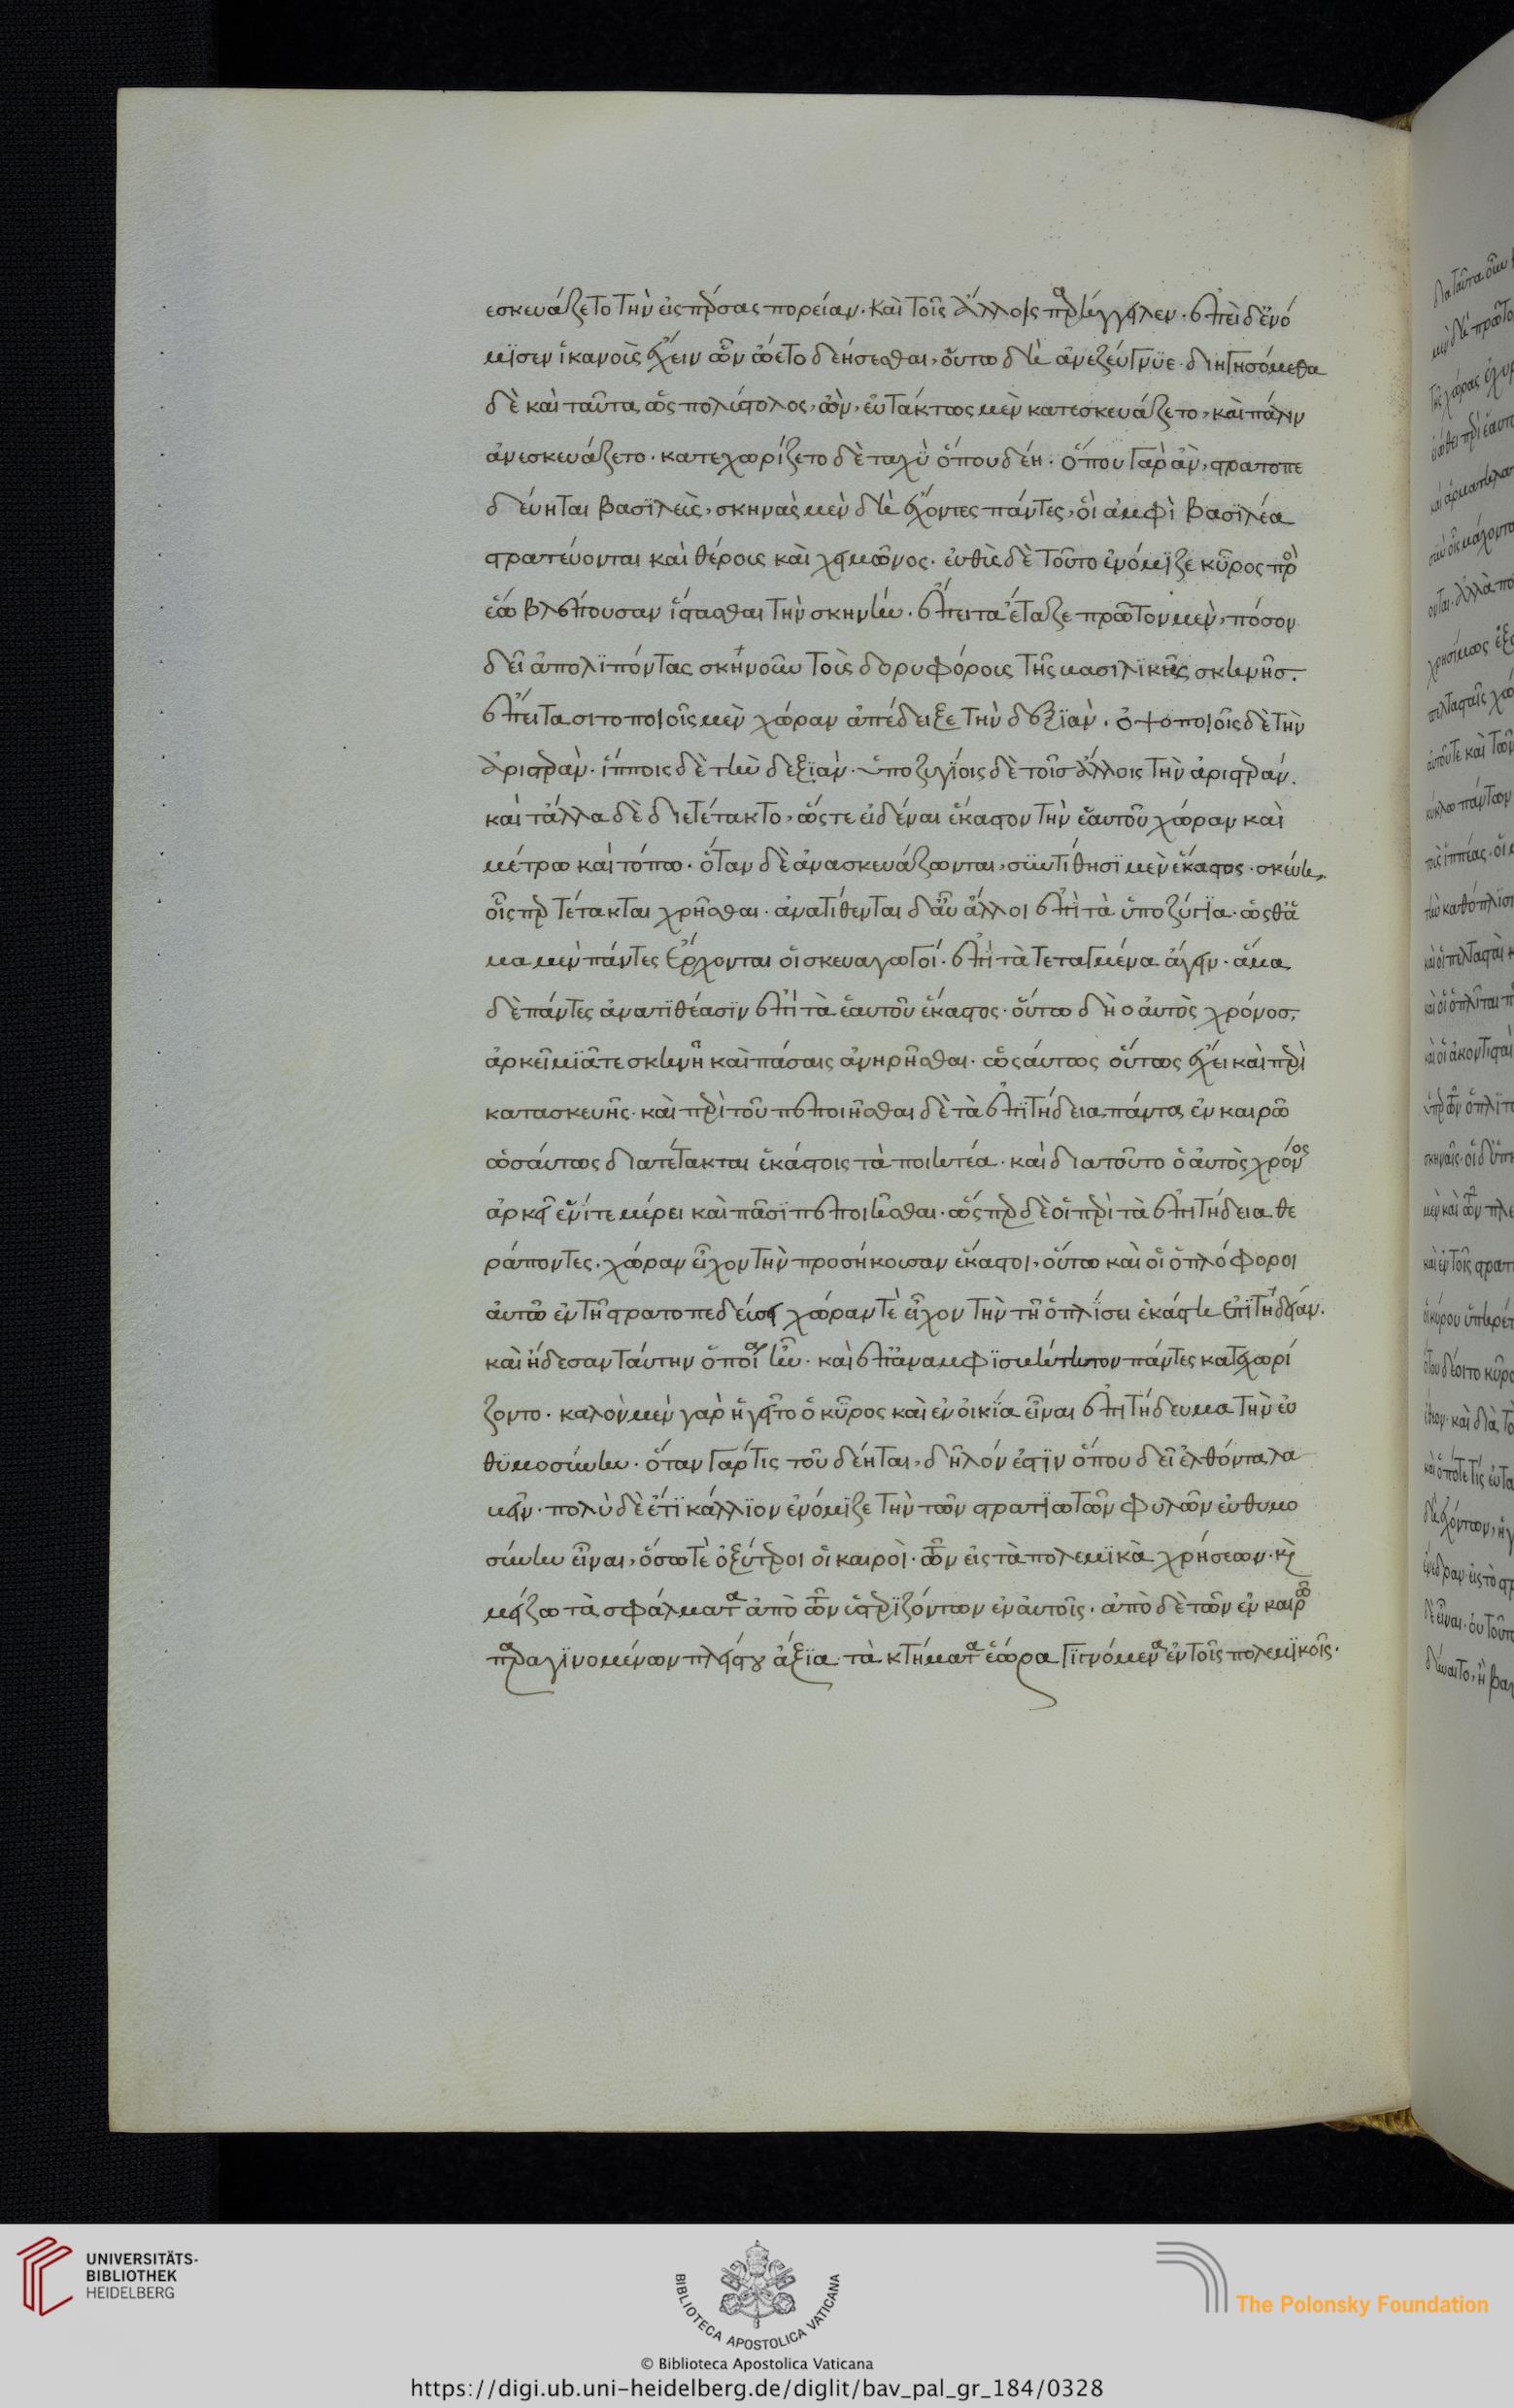 εσκευάζετο τὴν εἰς πέρσας πορείαν. καὶ τοῖς ἄλλοις παρήγγειλεν. ἐπεὶ δ' ἐνό
μϊσεν ἱκανοὶς ἔχειν ὧν ὤετο δεήσεσθαι, οὕτω δὴ ἀνεζεύγνϋε. διηγησόμεθα
δὲ καὶ ταῦτα ὡς πολύστολος, ὢν, εὐτάκτως μὲν κατεσκευάζετο, καὶ πάλιν
ἀνεσκευάζετο. κατεχωρίζετο δὲ ταχὺ ὅπου δέη. ὅπου γὰρ ἀν, στρατοπε
δέυηται βασϊλεὶς, σκηνὰς μὲν δὴ ἔχοντες πάντες, ὁι ἀμφὶ βασϊλέα
στρατεύονται καὶ θέρους καὶ χειμῶνος. ἐυθὺς δὲ τοῦτο ἐνόμϊζε κῦρος πρὸ
ἑώ βλέπουσαν ἵστασθαι τὴν σκηνήν. ἔπειτα ἔταξε πρῶτον μὲν, πόσον
δεῖ ἀπολϊπόντας σκηνοῦν τοὶς δορυφόροις τῆς βασιλϊκῆς σκηνῆσ.
ἔπειτα σιτοποιοῖς μὲν χώραν ἀπέδειξε τὴν δεξϊὰν. ὀψοποιοῖς δὲ τὴν
ἀριστερὰν. ἵπποις δὲ τὴν δεξϊὰν. ὑποζυγίοις δὲ τοῖσ ἄλλοις τὴν ἀριστεράν.
καὶ τἆλλα δὲ διετέτακτο, ὥςτε εἰδέναι ἕκαστον τὴν ἑαυτοῦ χώραν καὶ
μέτρω καὶ τόπω. ὅταν δὲ ἀνασκευάζωνται, συντίθησϊ μὲν ἕκαστος. σκεύη,
οἷς περ τέτακται χρῆσθαι. ἀνατίθενται δ' ἆυ ἄλλοι ἐπὶ τὰ ὑποζύγϊα. ὡςθἅ
μα μὲν πάντες ἔρχονται ὁι σκευαγωγοί. ἐπὶ τὰ τεταγμένα ἄγειν. ἅμα
δὲ πάντες ἀνατιθέασϊν ἐπὶ τὰ ἑαυτοῦ ἕκαστος. οὕτω δὴ ο ἀυτὸς χρόνοσ,
ἀρκεῖ μϊᾶ τε σκηνῆ καὶ πάσαις ἀνηρῆσθαι. ὡςάυτως οὕτως ἔχει καὶ περὶ
κατασκευῆς. καὶ περὶ τοῦ πεποιῆσθαι δὲ τὰ ἐπϊτήδεια, πάντα ἐν καιρῶ
ὡσάυτως διατέτακται ἑκάστοις τὰ ποιητέα. καὶ διατοῦτο ὁ ἀυτὸς χρόνος
ἀρκεῖ ἑνί τε μέρει καὶ πᾶσϊ πεποιῆσθαι. ὥςπερ δὲ οἱ περὶ τὰ ἐπιτήδεια θε
ράποντες. χώραν εἶχον τὴν προσήκουσαν ἕκαστοι, οὕτω καὶ οἱ ὁπλόφοροι
ἀυτῶ ἐν τῆ στρατοπεδείσει χώραν τὲ εἶχον τὴν τῆ ὁπλΐσει ἑκάστη ἐπϊτήδειάν.
καὶ ἤδεσαν ταύτην ὁποία ἦν. καὶ ἐπ' ἀναμφϊσβήτητον πάντες κατεχωρί
ζοντο. καλὸν μὲν γαρ ἡγεῖτο ὁ κῦρος καὶ ἐν ὀικΐα εἶναι ἐπιτήδευμα τὴν ἐυ
θϋμοσύνην. ὅταν γάρ τις του δέηται, δῆλόν ἐστϊν ὅπου δεῖ ἐλθόντα λα
βεῖν. πολὺ δὲ ἔτϊ κάλλϊον ἐνόμϊζε τὴν τῶν στρατϊωτῶν φυλῶν ἐυθυμο
σύνην εἶναι, ὅσω τὲ ὀξύτεροι οἱ καιροὶ. τῶν εἰς τὰ πολεμϊκὰ χρήσεων. κὶ
μείζω τὰ σφάλματα ἀπὸ τῶν ὑστερϊζόντων ἐν ἀυτοῖς. ἀπὸ δὲ τῶν ἐν καιρῶ
παραγϊνομένων πλείστου ἄξϊα τὰ κτήματα ἑώρα γϊγνόμενα ἐν τοῖς πολεμϊκοῖς.
UNIVERSITÄTS-
BIBLIOTHEK
HEIDELBERG
BIBLIOTECA APOSTOLICA VATICANA
© Biblioteca Apostolica Vaticana
The Polonsky Foundation
https://digi.ub.uni-heidelberg.de/diglit/bav_pal_gr_184/0328